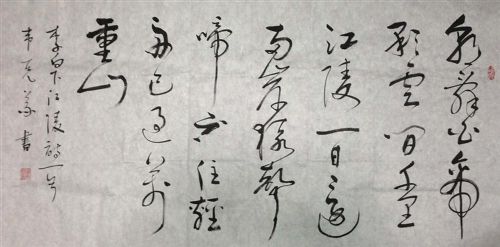 朝辭白帝
彩雲間千里
江陵一日還
兩岸猿聲
啼不住輕
舟已過萬
重山
李白下江陵詩一首
書